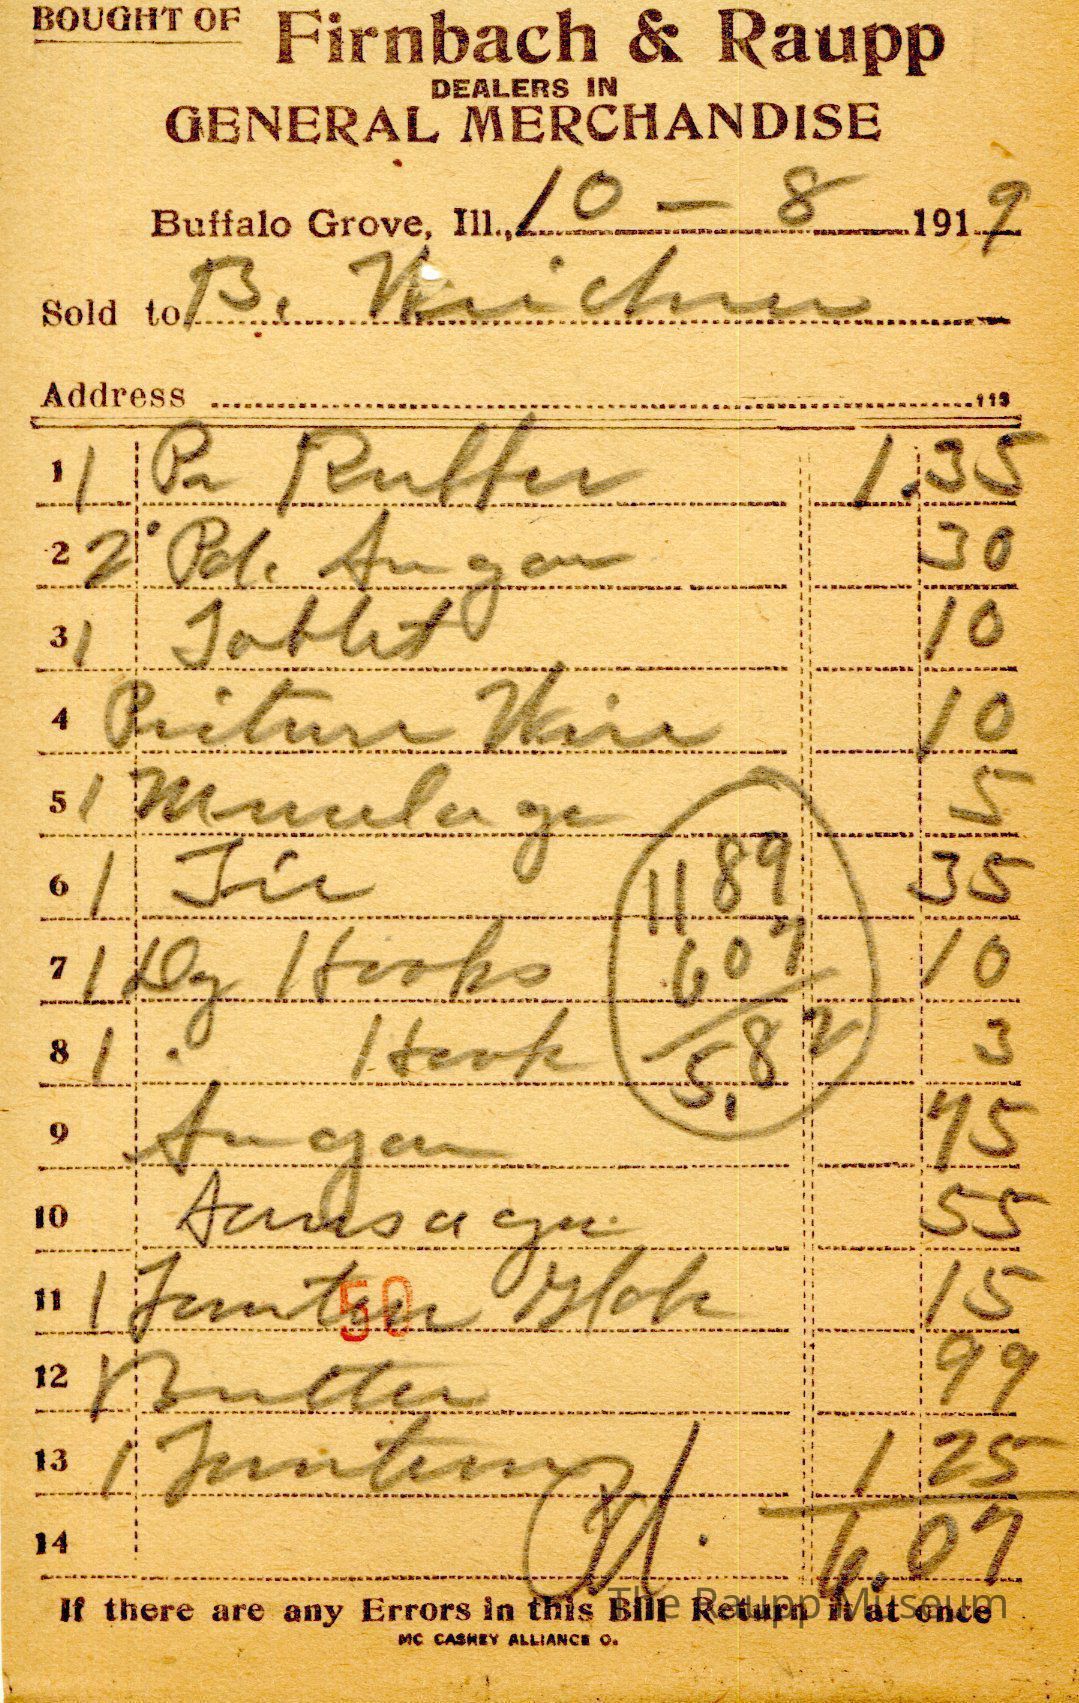 BOUGHT OF Firnbach & Raupp
DEALERS IN
GENERAL MERCHANDISE
Buffalo Grove, Ill., 10 - 8 1919
Sold to B.
Address 113
1 1 Pr Rubber 1.35
2 2 Pd. Sugar 30
3 1 Tablet 10
4 Picture Wire 10
5 1 Mucilage 5
6 1 Tie 35
1189
7 1 Dz Hooks 10
607
8 1 " Hook 3
5,82
9 Sugar 75
10 Sausage 55
11 1 Lantern Glob 15
50
12 Butter 99
13 1 Lantern 1 25
14 Pd. 6.07
If there are any Errors in this Bill Return it at once
The Raupp Museum
MC CASKEY ALLIANCE O.